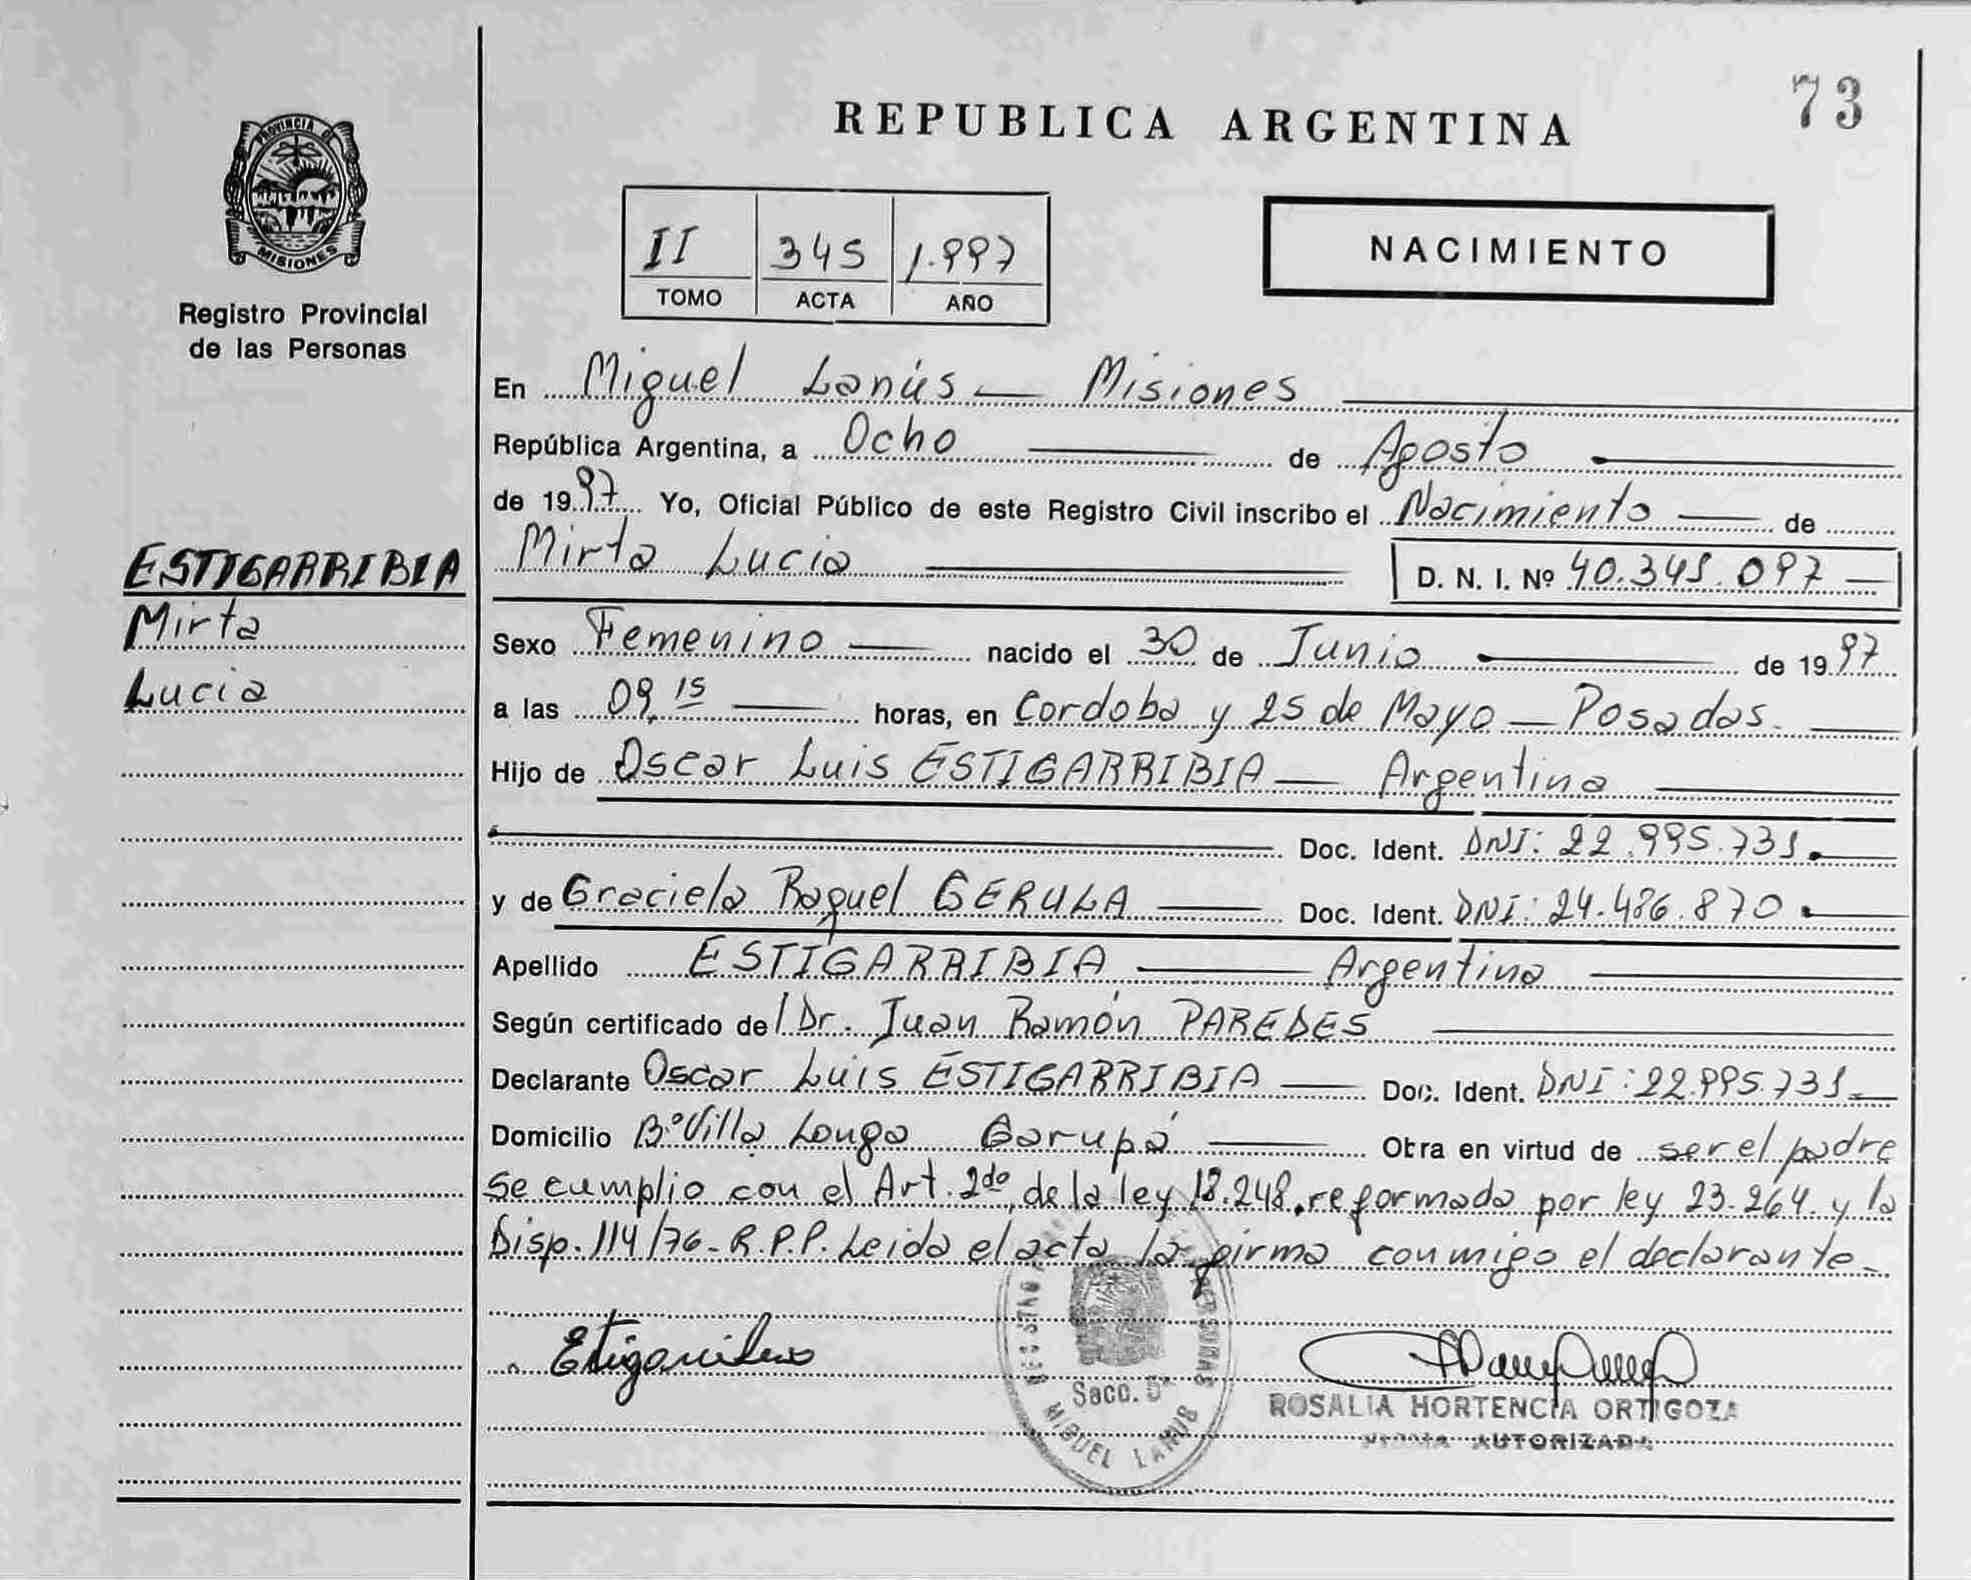 73
REPUBLICA ARGENTINA
PROVINCIA DE
MISIONES
Registro Provincial
de las Personas
II 345 1.997
TOMO ACTA AÑO
NACIMIENTO
En Miguel Lanús — Misiones
República Argentina, a Ocho de Agosto
de 1997 Yo, Oficial Público de este Registro Civil inscribo el Nacimiento de
ESTIGARRIBIA
Mirta
Lucia
Mirta Lucia D. N. I. Nº 40.345.097
Sexo Femenino nacido el 30 de Junio de 1997
a las 09,15 horas, en Cordoba y 25 de Mayo — Posadas.
Hijo de Oscar Luis ESTIGARRIBIA — Argentina
Doc. Ident. DNI: 22.995.731.
y de Graciela Raquel GERULA Doc. Ident. DNI: 24.486.870
Apellido ESTIGARRIBIA — Argentina
Según certificado del Dr. Juan Ramón PAREDES
Declarante Oscar Luis ESTIGARRIBIA Doc. Ident. DNI: 22.995.731
Domicilio Bº Villa Longa Garupá Obra en virtud de ser el padre
Se cumplio con el Art. 2do, de la ley 18.248, reformada por ley 23.264. y la
Disp. 114/76- R.P.P. Leida el acta la firma conmigo el declarante-
Secc. 5ª
MIGUEL LANUS
ROSALIA HORTENCIA ORTIGOZA
AUTORIZADA